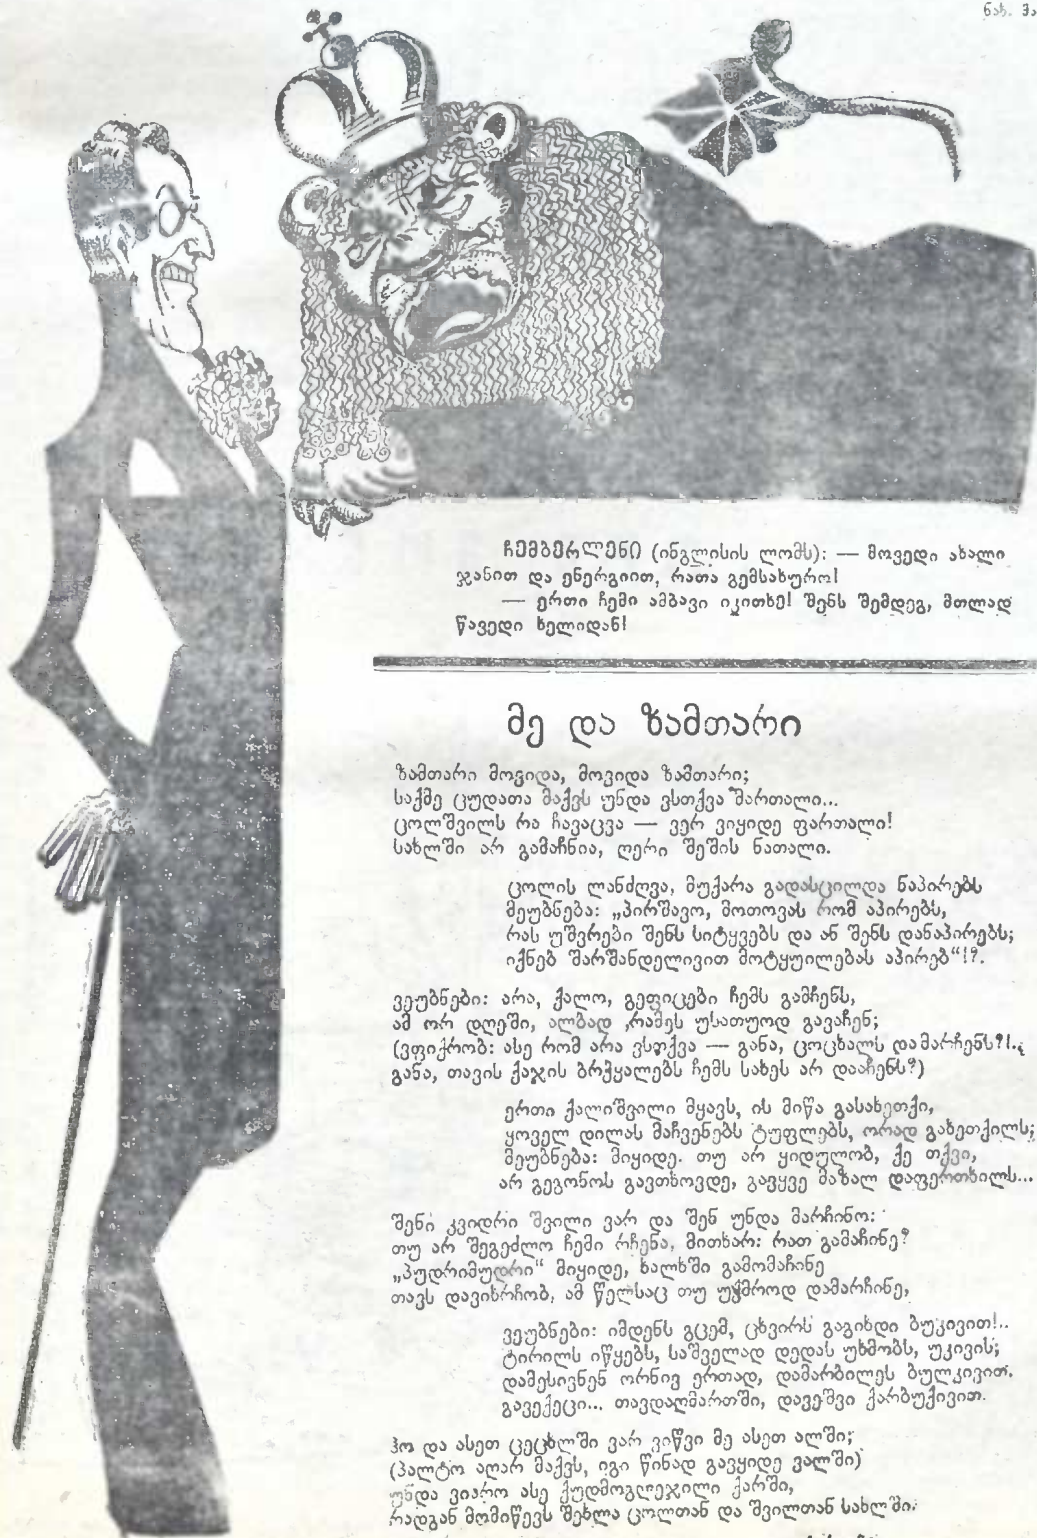 ნახ. 
ჩემბერლენი (ინგლისის ლომს): — მოვედი ახალი
ჯანით და ენერგიით, რათა გემსახურო!
— ერთი ჩემი ამბავი იკითხე! შენს შემდეგ, მთლად
წავედი ხელიდან!
მე და ზამთარი
ზამთარი მოვიდა, მოვიდა ზამთარი;
საქმე ცუდათა მაქვს უნდა ვსთქვა მართალი...
ცოლშვილს რა ჩავაცვა — ვერ ვიყიდე ფართალი!
სახლში არ გამაჩნია, ღერი შეშის ნათალი.
ცოლის ლანძღვა, მუქარა გადასცილდა ნაპირებს
მეუბნება: „პირშავო, მოთოვას რომ აპირებს,
რას უშვრები შენს სიტყვებს და ან შენს დანაპირებს;
იქნებ შარშანდელივით მოტყუილებას აპირებ“!?.
ვეუბნები: არა, ქალო, გეფიცები ჩემს გამჩენს,
ამ ორ დღეში, ალბად ,რამეს უსათუოდ გავაჩენ;
(ვფიქრობ: ასე რომ არა ვსთქვა — განა, ცოცხალს დამარჩენს?!..
განა, თავის ქაჯის ბრჭყალებს ჩემს სახეს არ დააჩენს?)
ერთი ქალიშვილი მყავს, ის მიწა გასახეთქი,
ყოველ დილას მაჩვენებს ტუფლებს, ორად გახეთქილს;
მეუბნება: მიყიდე. თუ არ ყიდულობ, ქე თქვი,
არ გეგონოს გავთხოვდე, გავყვე მაზალ დაფერთხილს...
შენი კვიდრი შვილი ვარ და შენ უნდა მარჩინო:
თუ არ შეგეძლო ჩემი რჩენა, მითხარ: რათ გამაჩინე?
„პუდრიმუდრი“ მიყიდე, ხალხში გამომაჩინე
თავს დავიხრჩობ, ამ წელსაც თუ უქმროდ დამარჩინე,
ვეუბნები: იმდენს გცემ, ცხვირს გაგიხდი ბუკივით!..
ტირილს იწყებს, საშველად დედას უხმობს, უკივის;
დამესივნენ ორნივ ერთად, დამარბილეს ბულკივით.
გავექეცი... თავდაღმართში, დავეშვი ქარბუქივით.
ჰო და ასეთ ცეცხლში ვარ ვიწვი მე ასეთ ალში;
(პალტო აღარ მაქვს, იგი წინად გავყიდე ვალში)
უნდა ვიარო ასე ქუდმოგლეჯილი ქარში,
რადგან მომიწევს შეხლა ცოლთან და შვილთან სახლში.